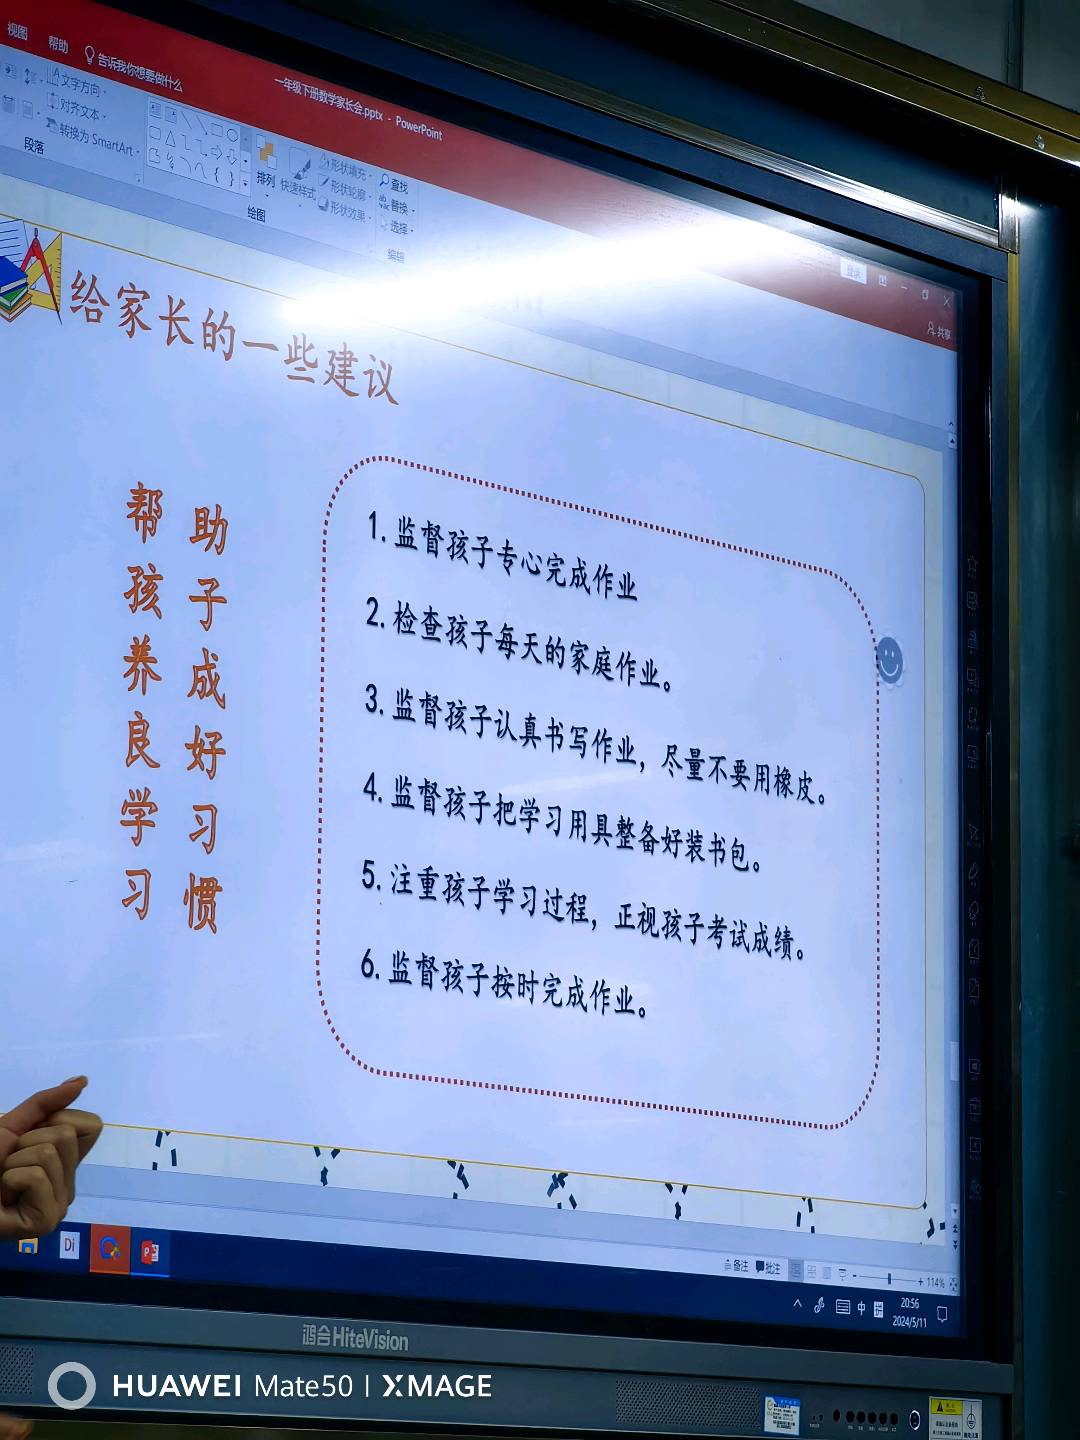 视图 帮助 告诉我你想要做什么
一年级下册数学家长会.pptx - PowerPoint
登录
共享
文字方向
对齐文本
转换为 SmartArt
段落
排列
快速样式
形状填充
形状轮廓
形状效果
绘图
查找
替换
选择
编辑
给家长的一些建议
帮助
孩子
养成
良好
学习
习惯
1.监督孩子专心完成作业
2.检查孩子每天的家庭作业。
3.监督孩子认真书写作业，尽量不要用橡皮。
4.监督孩子把学习用具整备好装书包。
5.注重孩子学习过程，正视孩子考试成绩。
6.监督孩子按时完成作业。
备注 批注
114%
Di
中
20:56
2024/5/11
鸿合HiteVision
HUAWEI Mate50 | XMAGE